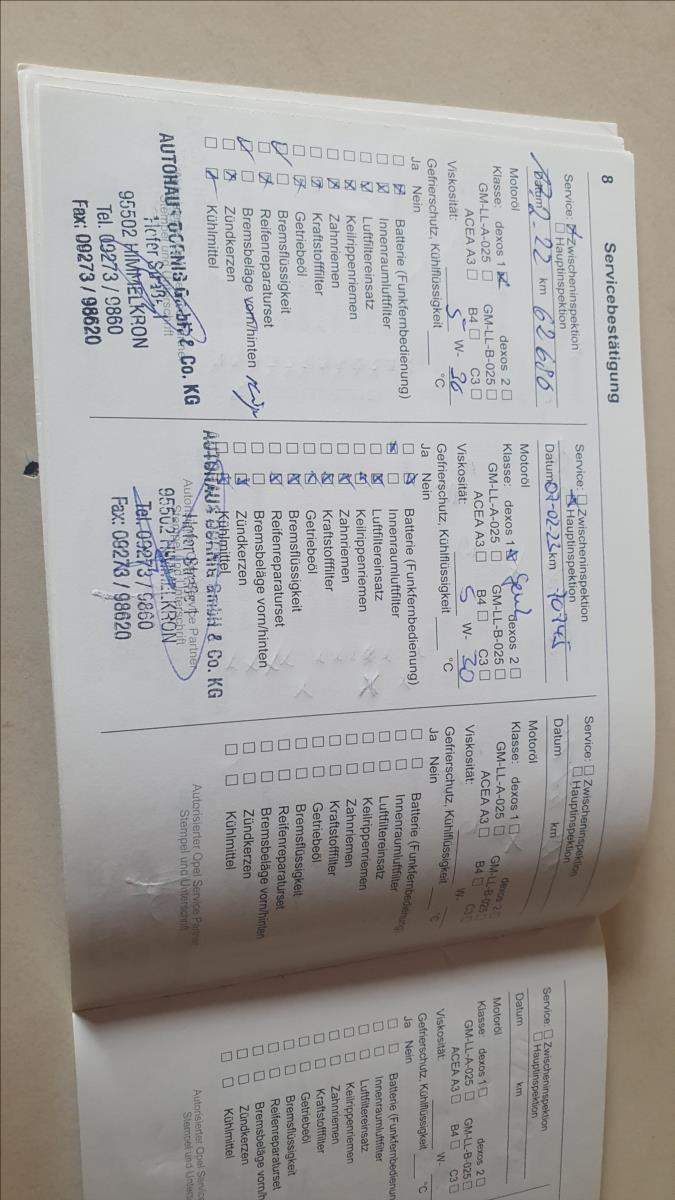 8 Servicebestätigung
Service: ☒ Zwischeninspektion
☐ Hauptinspektion
Datum 2-22 km 62686
Motoröl
Klasse: dexos 1 ☒ dexos 2 ☐
GM-LL-A-025 ☐ GM-LL-B-025 ☐
ACEA A3 ☐ B4 ☐ C3 ☐
Viskosität: 5 W- 30
Gefrierschutz, Kühlflüssigkeit °C
Ja Nein
☐ ☒ Batterie (Funkfernbedienung)
☐ ☒ Innenraumluftfilter
☐ ☒ Luftfiltereinsatz
☐ ☒ Keilrippenriemen
☐ ☒ Zahnriemen
☐ ☒ Kraftstofffilter
☐ ☒ Getriebeöl
☒ ☐ Bremsflüssigkeit
☐ ☒ Reifenreparaturset
☒ ☐ Bremsbeläge vorn/hinten
☐ ☒ Zündkerzen
☐ ☒ Kühlmittel
AUTOHAUS GmbH & Co. KG
95502 HIMMELKRON
Tel. 09273 / 9860
Fax: 09273 / 98620
Service: ☐ Zwischeninspektion
☒ Hauptinspektion
Datum 07-02-23 km 70745
Motoröl
Klasse: dexos 1 ☒ dexos 2 ☐
GM-LL-A-025 ☐ GM-LL-B-025 ☐
ACEA A3 ☐ B4 ☐ C3 ☐
Viskosität: 5 W- 30
Gefrierschutz, Kühlflüssigkeit °C
Ja Nein
☐ ☒ Batterie (Funkfernbedienung)
☒ ☐ Innenraumluftfilter
☐ ☒ Luftfiltereinsatz
☐ ☒ Keilrippenriemen
☐ ☒ Zahnriemen
☐ ☒ Kraftstofffilter
☐ ☒ Getriebeöl
☐ ☒ Bremsflüssigkeit
☐ ☒ Reifenreparaturset
☐ ☐ Bremsbeläge vorn/hinten
☐ ☒ Zündkerzen
☐ ☒ Kühlmittel
AUTOHAUS GmbH & Co. KG
95502 HIMMELKRON
Tel. 09273 / 9860
Fax: 09273 / 98620
Service: ☐ Zwischeninspektion
☐ Hauptinspektion
Datum km
Motoröl
Klasse: dexos 1 ☐ dexos 2 ☐
GM-LL-A-025 ☐ GM-LL-B-025 ☐
ACEA A3 ☐ B4 ☐ C3 ☐
Viskosität: W-
Gefrierschutz, Kühlflüssigkeit °C
Ja Nein
☐ ☐ Batterie (Funkfernbedienung)
☐ ☐ Innenraumluftfilter
☐ ☐ Luftfiltereinsatz
☐ ☐ Keilrippenriemen
☐ ☐ Zahnriemen
☐ ☐ Kraftstofffilter
☐ ☐ Getriebeöl
☐ ☐ Bremsflüssigkeit
☐ ☐ Reifenreparaturset
☐ ☐ Bremsbeläge vorn/hinten
☐ ☐ Zündkerzen
☐ ☐ Kühlmittel
Autorisierter Opel Service Partner
Stempel und Unterschrift
Service: ☐ Zwischeninspektion
☐ Hauptinspektion
Datum km
Motoröl
Klasse: dexos 1 ☐ dexos 2 ☐
GM-LL-A-025 ☐ GM-LL-B-025 ☐
ACEA A3 ☐ B4 ☐ C3 ☐
Viskosität: W-
Gefrierschutz, Kühlflüssigkeit °C
Ja Nein
☐ ☐ Batterie (Funkfernbedienun
☐ ☐ Innenraumluftfilter
☐ ☐ Luftfiltereinsatz
☐ ☐ Keilrippenriemen
☐ ☐ Zahnriemen
☐ ☐ Kraftstofffilter
☐ ☐ Getriebeöl
☐ ☐ Bremsflüssigkeit
☐ ☐ Reifenreparaturset
☐ ☐ Bremsbeläge vorn/h
☐ ☐ Zündkerzen
☐ ☐ Kühlmittel
Autorisierter Opel Servic
Stempel und Unters